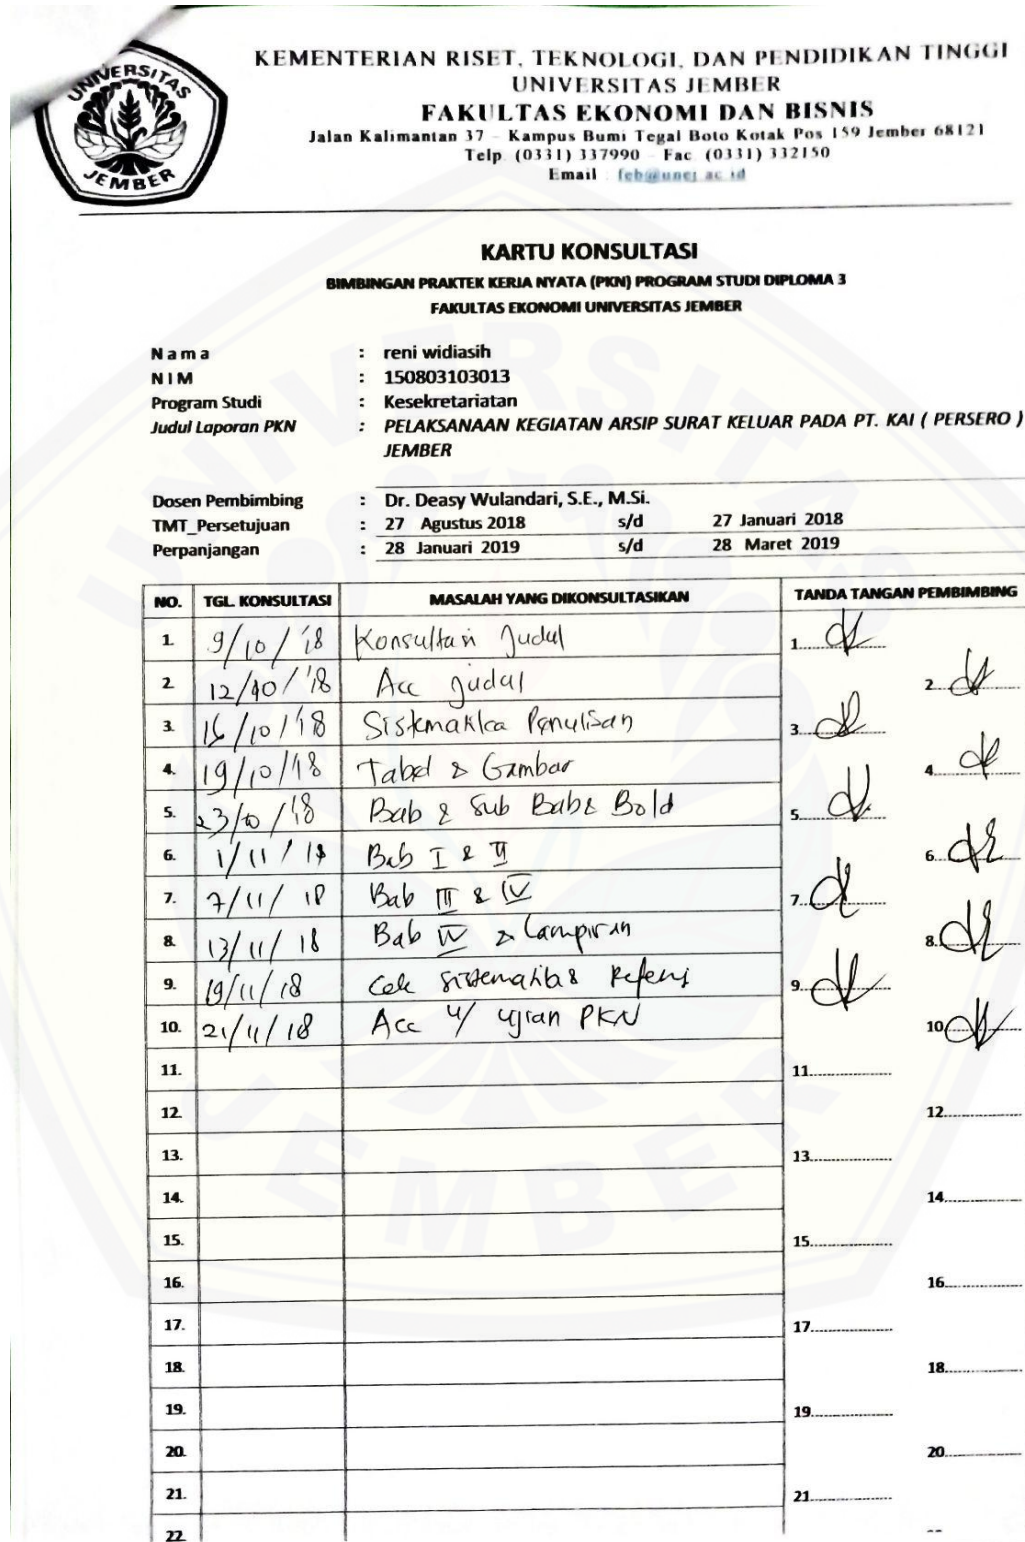 UNIVERSITAS
JEMBER
KEMENTERIAN RISET, TEKNOLOGI, DAN PENDIDIKAN TINGGI
UNIVERSITAS JEMBER
FAKULTAS EKONOMI DAN BISNIS
Jalan Kalimantan 37 - Kampus Bumi Tegal Boto Kotak Pos 159 Jember 68121
Telp. (0331) 337990 - Fac. (0331) 332150
Email : feb@unej.ac.id
KARTU KONSULTASI
BIMBINGAN PRAKTEK KERJA NYATA (PKN) PROGRAM STUDI DIPLOMA 3
FAKULTAS EKONOMI UNIVERSITAS JEMBER
N a m a : reni widiasih
N I M : 150803103013
Program Studi : Kesekretariatan
Judul Laporan PKN : PELAKSANAAN KEGIATAN ARSIP SURAT KELUAR PADA PT. KAI ( PERSERO )
JEMBER
Dosen Pembimbing : Dr. Deasy Wulandari, S.E., M.Si.
TMT_Persetujuan : 27 Agustus 2018 s/d 27 Januari 2018
Perpanjangan : 28 Januari 2019 s/d 28 Maret 2019
NO. TGL. KONSULTASI MASALAH YANG DIKONSULTASIKAN TANDA TANGAN PEMBIMBING
1. 9/10/'18 Konsultasi Judul 1.
2. 12/10/'18 Acc Judul 2.
3. 16/10/'18 Sistematika Penulisan 3.
4. 19/10/'18 Tabel & Gambar 4.
5. 23/10/'18 Bab & Sub Bab & Bold 5.
6. 1/11/18 Bab I & II 6.
7. 7/11/18 Bab III & IV 7.
8. 13/11/18 Bab IV & Lampiran 8.
9. 19/11/18 Cek 9.
10. 21/11/18 Acc u/ ujian PKN 10.
11. 11.
12. 12.
13. 13.
14. 14.
15. 15.
16. 16.
17. 17.
18. 18.
19. 19.
20. 20.
21. 21.
22.
UNIVERSITAS
JEMBER